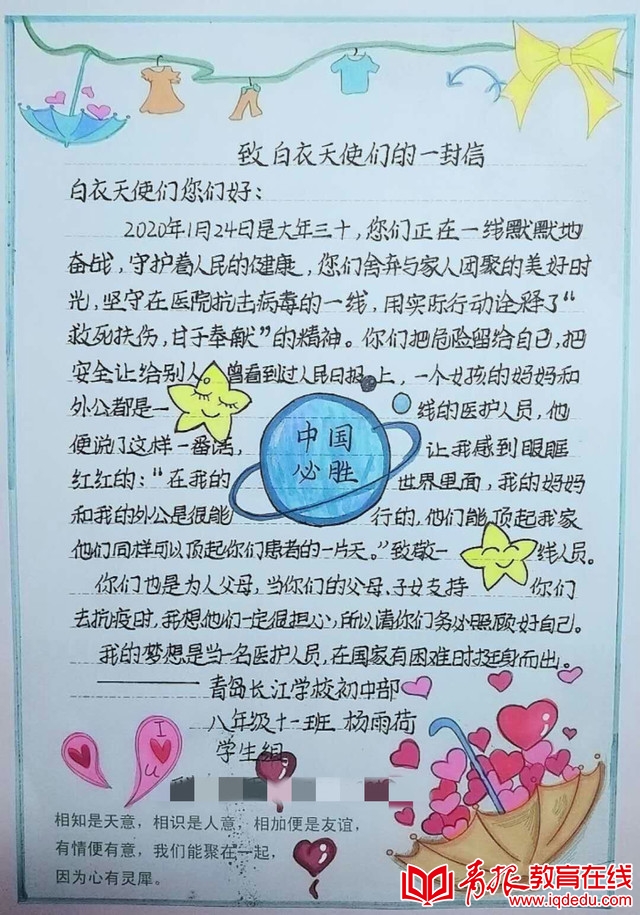 致白衣天使们的一封信
白衣天使们您们好：
2020年1月24日是大年三十，您们正在一线默默地
奋战，守护着人民的健康，您们舍弃与家人团聚的美好时
光，坚守在医院抗击病毒的一线，用实际行动诠释了“
救死扶伤，甘于奉献”的精神。你们把危险留给自己，把
安全让给别人 曾看到过人民日报 上，一个女孩的妈妈和
外公都是一 线的医护人员，他
便说了这样一番话， 让我感到眼眶
红红的：“在我的 世界里面，我的妈妈
和我的外公是很能 行的，他们能顶起我家
他们同样可以顶起你们患者的一片天。”致敬一 线人员。
你们也是为人父母，当你们的父母、子女支持 你们
去抗疫时，我想他们一定很担心，所以请你们务必照顾好自己。
我的梦想是当一名医护人员，在国家有困难时挺身而出。
中国
必胜
——青岛长江学校初中部
八年级十一班 杨雨荷
学生组
I
U
相知是天意，相识是人意，相加便是友谊，
有情便有意，我们能聚在一起，
因为心有灵犀。
青报教育在线
www.iqdedu.com